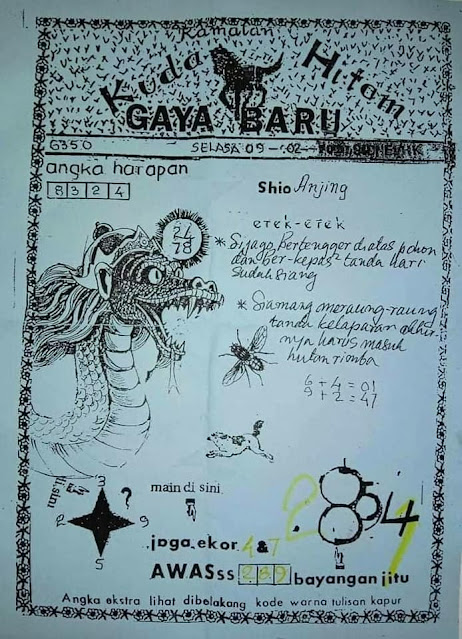 Ramalan
Kuda Hitam
GAYA BARU
6350
SELASA 09-02-
angka harapan
8 3 2 4
Shio Anjing
24
78
etek-etek
* Si jago bertengger diatas pohon
dan ber-kepas tanda hari
sudah siang
* Siamang meraung-raung
tanda kelaparan akhir
nya harus masuk
hutan rimba
6 + 4 = 01
9 + 2 = 47
di sini
3
?
2
9
5
main di sini
2 8 5 4 1
jaga ekor 4 & 7
AWASss 2 8 9 bayangan jitu
Angka ekstra lihat dibelakang kode warna tulisan kapur